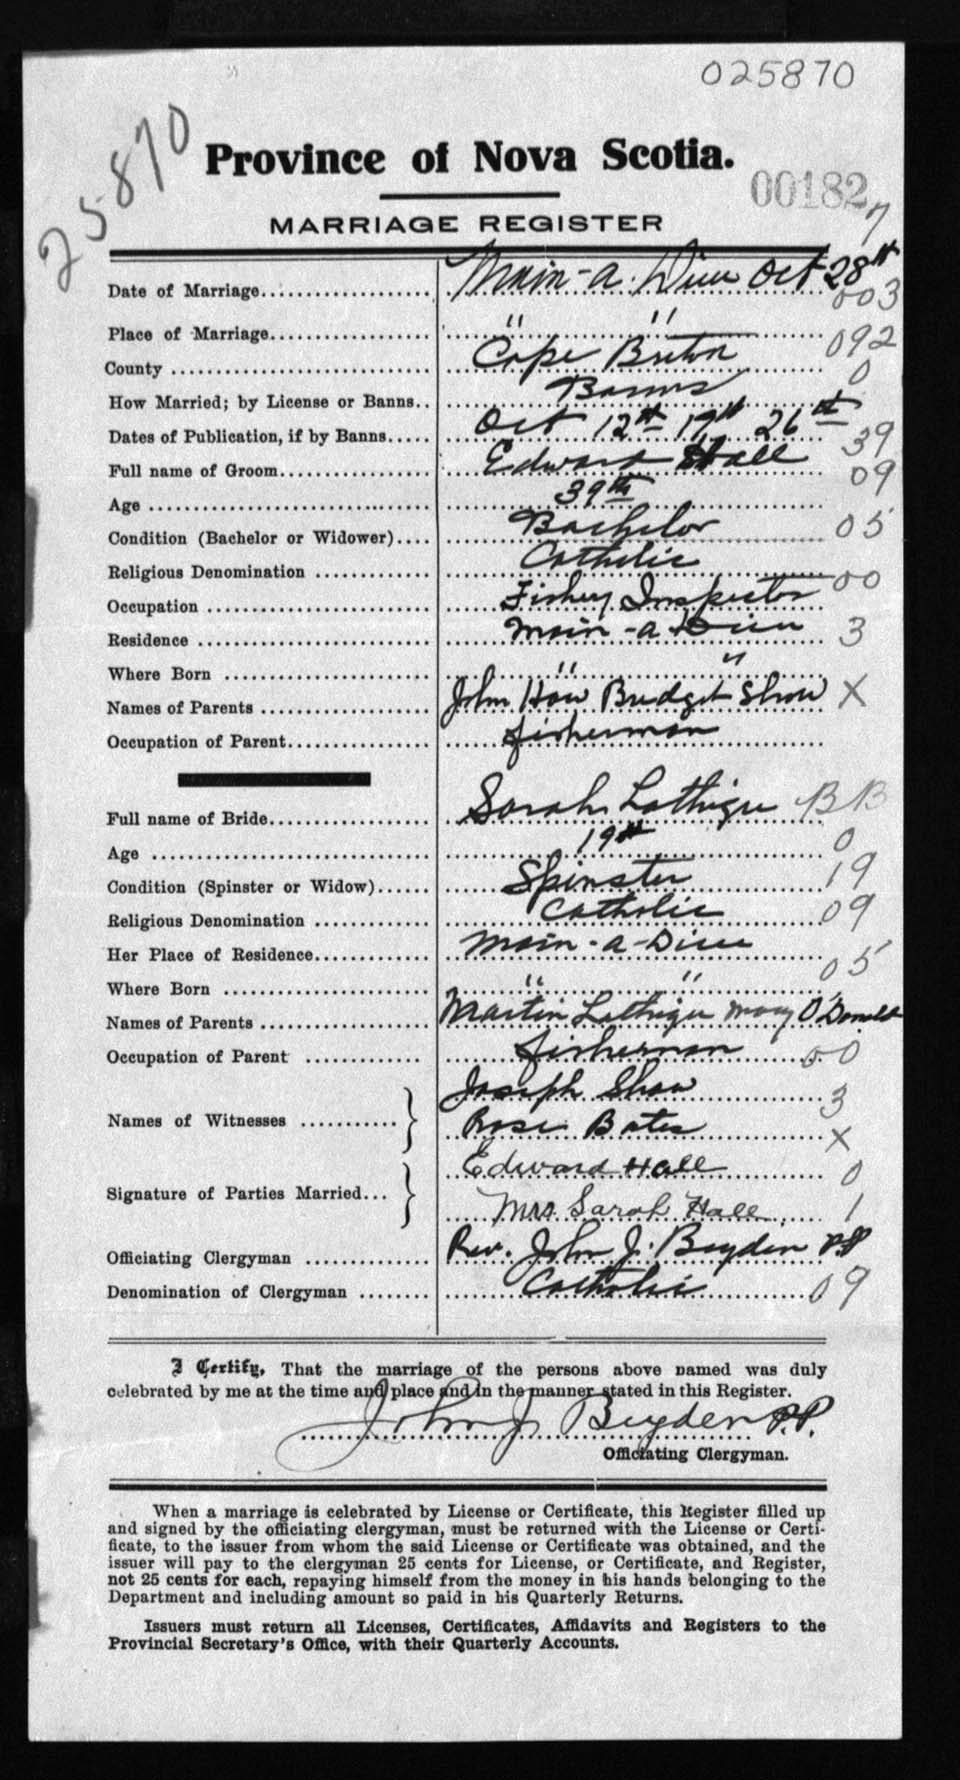 025870
25870
Province of Nova Scotia.
00182
7
MARRIAGE REGISTER
Date of Marriage Main-a-Dieu Oct 28th
003
Place of Marriage " "
092
County Cape Breton
0
How Married; by License or Banns.. Banns
Dates of Publication, if by Banns Oct 12th 19th 26th
39
Full name of Groom Edward Hall
09
Age 39th
Condition (Bachelor or Widower) Bachelor 05
Religious Denomination Catholic
00
Occupation Fishery Inspector
Residence Main-a-Dieu 3
Where Born " "
Names of Parents John Hall Bridget Shaw X
Occupation of Parent fisherman
Full name of Bride Sarah Lathigee BB
Age 19th 0
Condition (Spinster or Widow) Spinster 19
Religious Denomination Catholic 09
Her Place of Residence Main-a-Dieu
05
Where Born " "
Names of Parents Martin Lathigee Mary O'Donald
Occupation of Parent fisherman 00
Names of Witnesses Joseph Shaw
3
Rose Bates
X
Signature of Parties Married... Edward Hall
0
Mrs Sarah Hall 1
Officiating Clergyman Rev. John J. Beyden P.P
Denomination of Clergyman Catholic 09
I Certify, That the marriage of the persons above named was duly
celebrated by me at the time and place and in the manner stated in this Register.
John J Beyden P.P.
Officiating Clergyman.
When a marriage is celebrated by License or Certificate, this Register filled up
and signed by the officiating clergyman, must be returned with the License or Certi-
ficate, to the issuer from whom the said License or Certificate was obtained, and the
issuer will pay to the clergyman 25 cents for License, or Certificate, and Register,
not 25 cents for each, repaying himself from the money in his hands belonging to the
Department and including amount so paid in his Quarterly Returns.
Issuers must return all Licenses, Certificates, Affidavits and Registers to the
Provincial Secretary's Office, with their Quarterly Accounts.